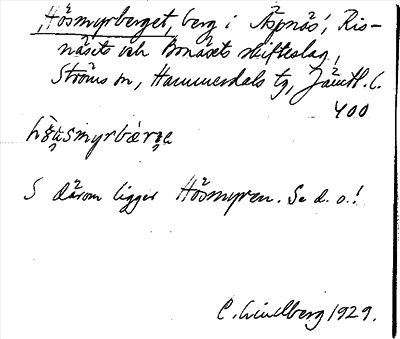 Hösmyrberget, berg i Äspnäs, Ris-
näsets och Bonäsets skifteslag,
Ströms sn, Hammerdals tg, Jämtl. l.
400
S därom ligger Hösmyren. Se d. o.!
C. Lindberg 1929.